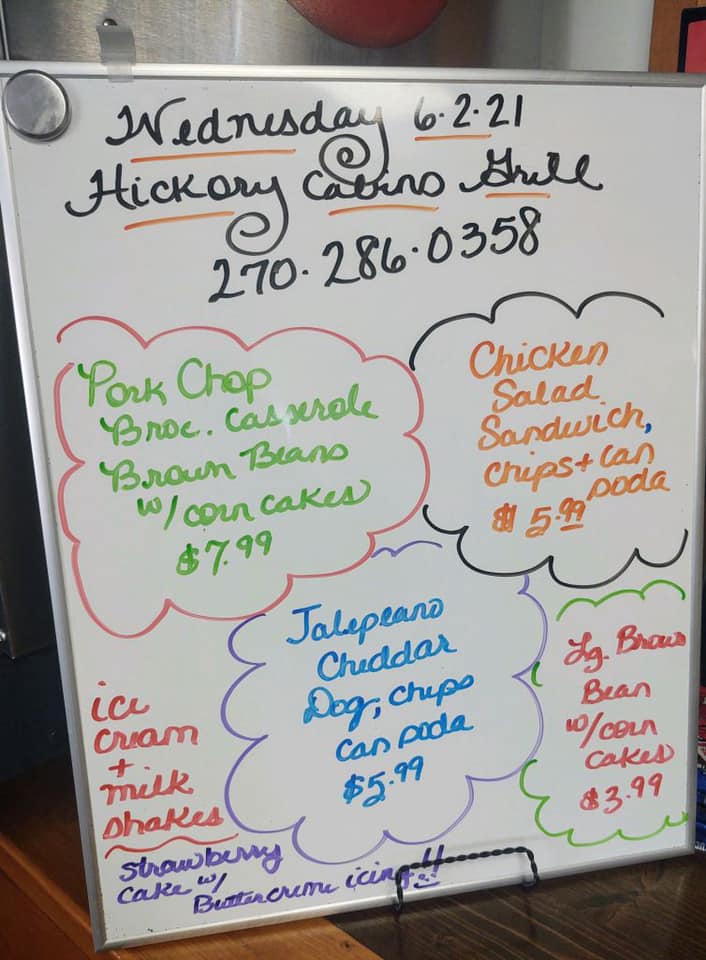 Wednesday 6.2.21
Hickory Cabins Grill
270.286.0358
Pork Chop
Broc. Casserole
Brown Beans
w/corn cakes
$7.99
Chicken
Salad
Sandwich,
Chips + can
soda
$5.99
Jalepeano
Cheddar
Dog, chips
can soda
$5.99
Lg. Brown
Bean
w/corn
cakes
$3.99
ice
cream
+
milk
shakes
Strawberry
Cake w/
Buttercreme icing!!